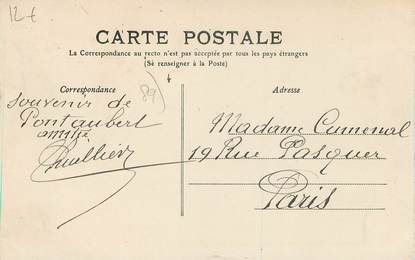 12 €
CARTE POSTALE
La Correspondance au recto n'est pas acceptée par tous les pays étrangers
(Se renseigner à la Poste)
Correspondance
Adresse
89)
Souvenir de
Pontaubert
amitié
Madame Cumenal
19 Rue Pasquer
Paris